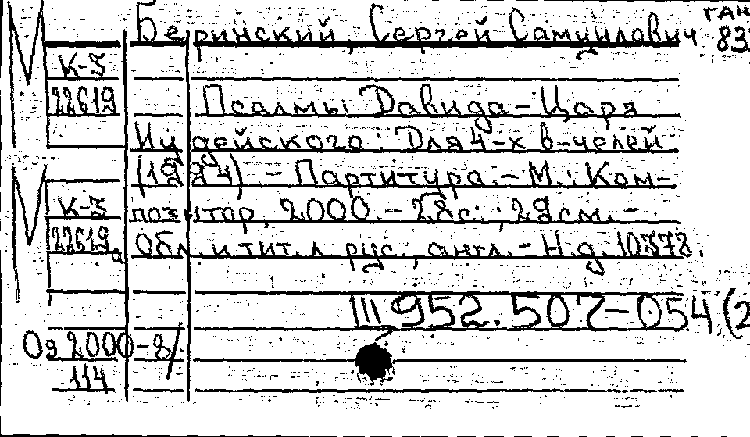 Беринский, Сергей Самуилович
ГАН
83
К-3
22619
Псалмы Давида-Царя
Иудейского: Для 4-х в-челей
(1994). - Партитура. - М.: Ком-
К-3
позитор, 2000. - 28с.; 29см. -
22619а
Обл. и тит. л. рус., англ. - Н.д. 10373.
III 952.507-054 (2
Оз 2000-8/
114